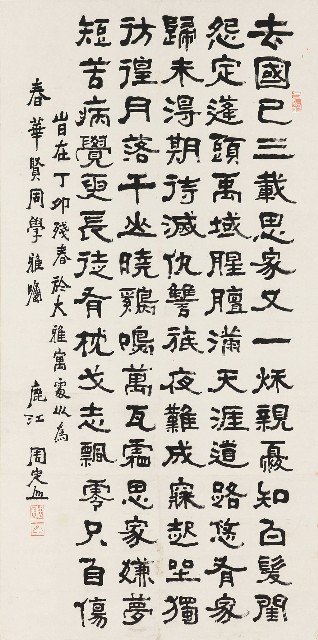 去國已三載思家又一秋親憂知白髮閨
怨定蓬頭禹域腥膻滿天涯道路悠有家
歸未得期待滅仇讐祗夜難成寐起坐獨
彷徨月落千山曉鷄鳴萬瓦霜思家嫌夢
短苦病覺更長徒有枕戈志飄零只自傷
旹在丁卯殘春於大雅寓處以為
春華賢周學雅囑 鹿江 周定山